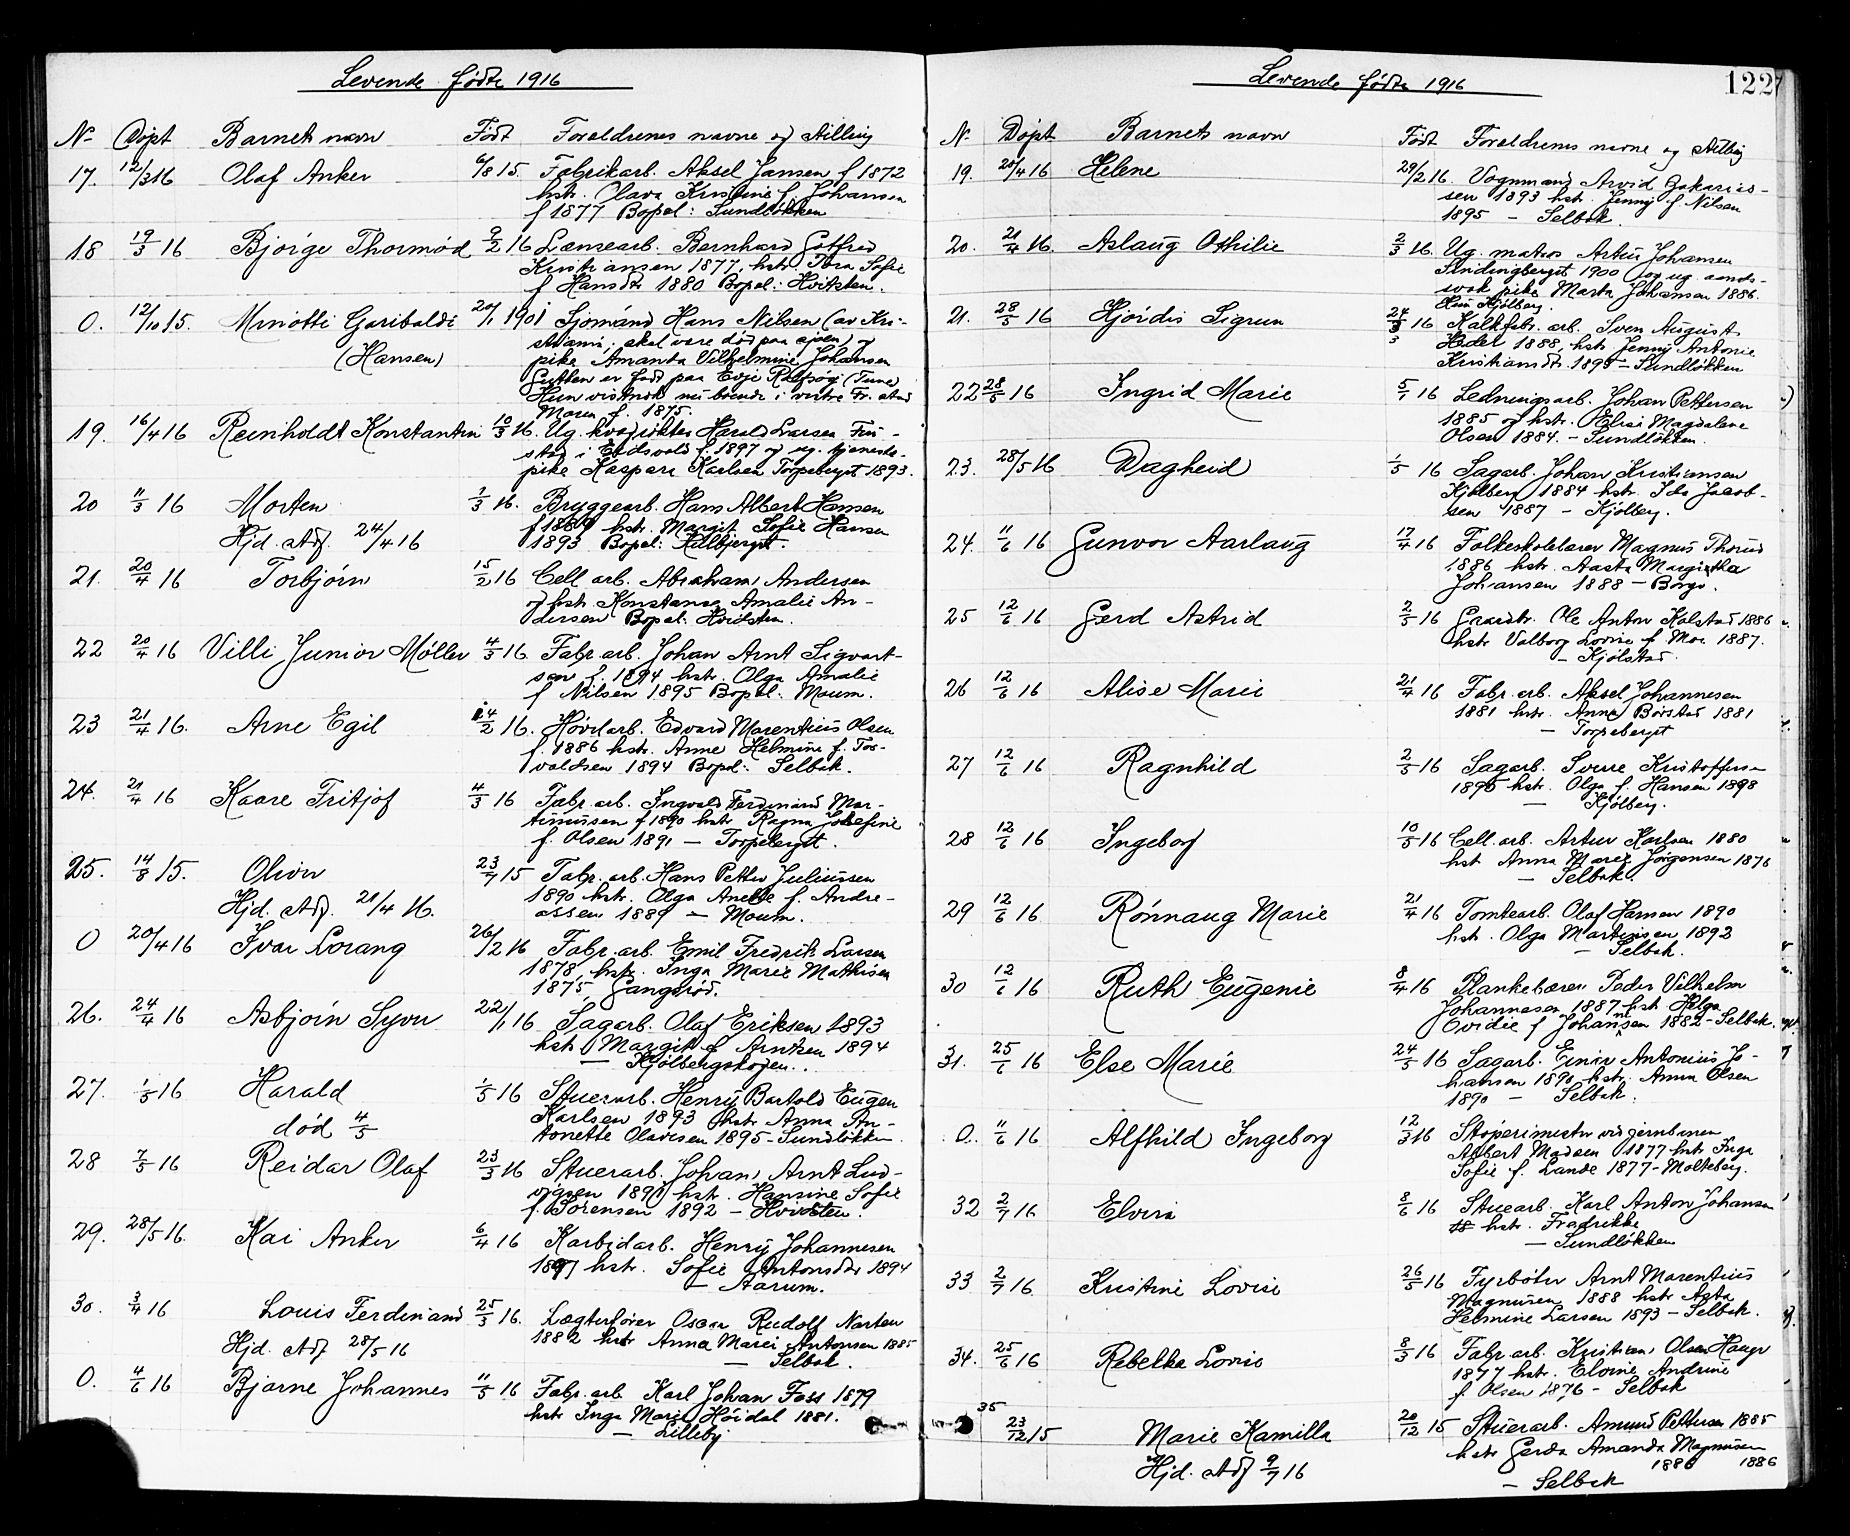 Levende fødte 1916
No Døpt Barnets navn Født Forældrenes navne og stilling
17. 12/3 16 Olaf Anker 6/8 15. Fabrikarb. Aksel Jansen f 1872
hstr. Olava Kristine f. Johansen
f 1877 Bopæl: Sundløkken
18 19/3 16 Bjørge Thormød 9/2 16 Læmsearb. Bernhard Gotfred
Kristiansen 1877, hstr. Thra Sofie
f Hansdtr 1880 Bopæl: Hvitsten.
0. 12/10 15. Minotti Garibaldi 20/1 1901 Sjømand Hans Nilsen (av Kri-
(Hansen) stiania, skal være død paa sjøen) og
pike Amanda Vilhelmine Johansen
Gutten er født paa Evje Rolfsøy (Tune)
Hun vistnok nu boende i vestre Fr.stad
Moren f. 1875.
19. 16/4 16 Reinholdt Konstantin 10/3 16. Ug. Harald Larsen Fin-
stad i Eidsvold f. 1897 og ug. tjeneste-
pike Kaspara Karlsen Torpeberget 1893.
20 11/3 16 Morten 7/3 16. Bryggearb. Hans Albert Hansen
f 1889 hstr. Margit Sofie Hansen
Hjd. Adj. 24/4 16 1893 Bopæl: Kilbjerget.
21. 20/4 16 Torbjørn 15/2 16 Cell arb. Abraham Andersen
og hstr. Konstanse Amalie An-
dersen Bopæl: Hvitsten.
22 20/4 16 Villi Junior Møller 4/3 16. Fabr. arb. Johan Arnt Sigvart-
sen f. 1894 hstr. Olga Amalie
f Nilsen 1895 Bopæl: Moum.
23 21/4 16. Arne Egil 14/2 16. Høvlarb. Edvard Marentius Olsen
f. 1886 hstr. Anne Helmine f. Tor-
valdsen 1894 Bopæl: Selbak.
24. 21/4 16 Kaare Fritjof 4/3 16 Fabr arb. Ingvald Ferdinand Mar-
tinussen f 1890 hstr Ragna Josefine
f. Olsen 1891 — Torpeberget.
25. 14/8 15. Oliver 23/7 15 Fabr. arb. Hans Petter Juliussen
1890 hstr. Olga Anette f. Andre-
Hjd. Adj. 21/4 16. assen 1889 — Moum.
0 20/4 16 Ivar Lorang 26/2 16 Fabr. arb. Emil Fredrik Larsen
1878, hstr. Inga Marie Mathisen
1875, Gangsrød.
26. 24/4 16 Asbjørn Syver 22/1 16 Sagarb. Olaf Eriksen 1893
hstr. Margit f Arntzen 1894
— Kjølbergskogen.
27. 1/5 16 Harald 1/5 16 Stuerarb. Henry Bartold Eugen
Karlsen 1893 hstr Anna An-
død 4/5 tonette Olavesen 1895 - Sundløkken
28 7/5 16 Reidar Olaf 23/3 16 Stuerarb. Johan Arnt Lud-
vigsen 1891 hstr. Hansine Sofie
f. Sørensen 1892 — Hvidsten.
29. 28/5 16. Kai Anker 6/4 16 Karbidarb. Henry Johannesen
1897 hstr. Sofie Antonsdtr 1894
— Aarum.
30. 3/4 16 Louis Ferdinand 25/3 16. Lægterfører Oscar Rudolf Narten
1882 hstr Anna Marie Antonsen 1885
Hjd. Adj 28/5 16 — Selbak.
0. 4/6 16 Bjarne Johannes 11/5 16 Fabr. arb Karl Johan Foss 1879
hstr Inga Marie Høidal 1881.
— Lilleby
Levende fødte 1916
122
No Døpt Barnets navn Født Forældrenes navne og stilling
19. 20/4 16 Helene 29/2 16. Vognmand Arvid Sakarias-
sen 1893 hstr. Jenny f Nilsen
1895 — Selbak.
20. 21/4 16. Aslaug Othilie 2/3 16. Ug. matros Artur Johansen
Sindingberget 1900 og ug. aands-
svak pike Marta Johansen 1886.
Kjølberg.
21. 28/5 16 Hjørdis Sigrun 24/3 16 Kalkfabr. arb. Sven August
Hedel 1888, hstr. Jenny Antonie
Kristiansdtr. 1895 — Sundløkken
22 28/5 16 Ingrid Marie 5/1 16 Ledningsarb. Johan Pettersen
1885 og hstr. Elise Magdalene
Olsen 1884. — Sundløkken.
23. 28/5 16 Dagheid 1/5 16 Sagarb. Johan Kristiansen
Kjølberg 1884 hstr. Ida Jacob-
sen 1887 — Kjølberg.
24. 11/6 16 Gunvor Aarlaug 17/4 16 Folkeskolelærer Magnus Thorud
1886 hstr. Aasta Margretha
Johansen 1888 — Borge.
25 12/6 16 Gerd Astrid 2/5 16 Ole Anton Kolstad 1886
hstr Valborg Lovise f Moe 1887.
— Kjølstad.
26 12/6 16 Alise Marie 21/4 16 Fabr. arb. Aksel Johannesen
1881 hstr. Anna Børstad 1881
— Torpeberget
27 12/6 16 Ragnhild 2/5 16 Sagarb. Sverre Kristoffersen
1895 hstr. Olga f. Hansen 1898
— Kjølberg.
28 12/6 16 Ingeborg 10/5 16 Cell. arb. Artur Karlsen 1880
hstr Anna Marie Jørgensen 1876
— Selbak.
29 12/6 16 Rønnaug Marie 21/4 16 Tomtearb. Olaf Hansen 1890
hstr. Olga Martinsen 1892
— Selbak.
30 12/6 16 Ruth Eugenie 8/4 16 Plankebærer Peder Vilhelm
Johannesen 1887 hstr Helga
Ovidie f Johansen 1882 - Selbak.
31. 25/6 16 Else Marie 24/5 16 Sagarb. Einar Antonius Jo-
hansen 1890 hstr. Anna Olsen
1890 — Selbak.
0. 11/6 16 Alfhild Ingeborg 12/3 16 Støperimester ved jernbanen
Albert Madsen 1877 hstr Inga
Sofie f. Lande 1877 - Molteberg.
32 2/7 16 Elvira 8/6 16 Stuearb. Karl Anton Johansen
hstr. Fredrikke
— Sundløkken
33 2/7 16 Kristine Lovise 26/5 16 Fyrbøter Arnt Marentius
Magnusen 1888 hstr Asta
Helmine Larsen 1893 — Selbak.
34. 25/6 16 Rebekka Lovise 8/3 16 Fabr arb. Kristian Olsen Hauge
1877 hstr. Elvine Andrine
f. Olsen 1876 — Selbak
35 23/12 15 Marie Kamilla 20/12 15 Stuerarb. Amund Pettersen 1885
hstr Gerda Amanda Magnusen
Hjd. Adj 9/7 16 1886 1886
— Selbak